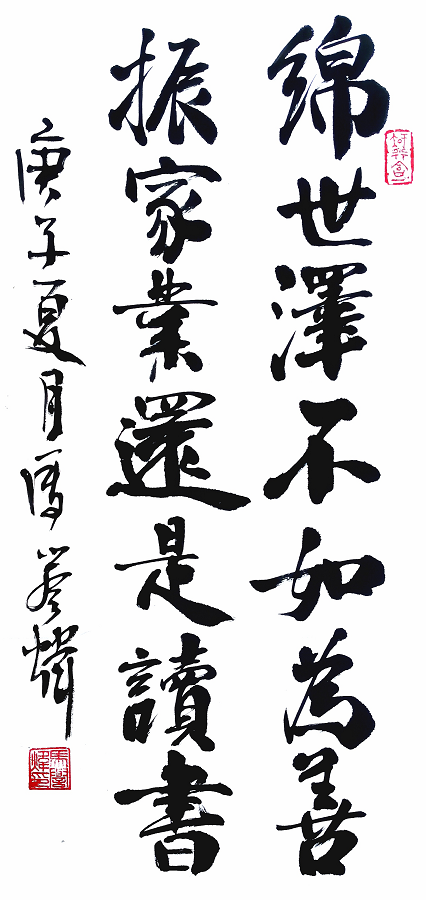 綿世澤不如為善
振家業還是讀書
庚子夏月馮荃燁